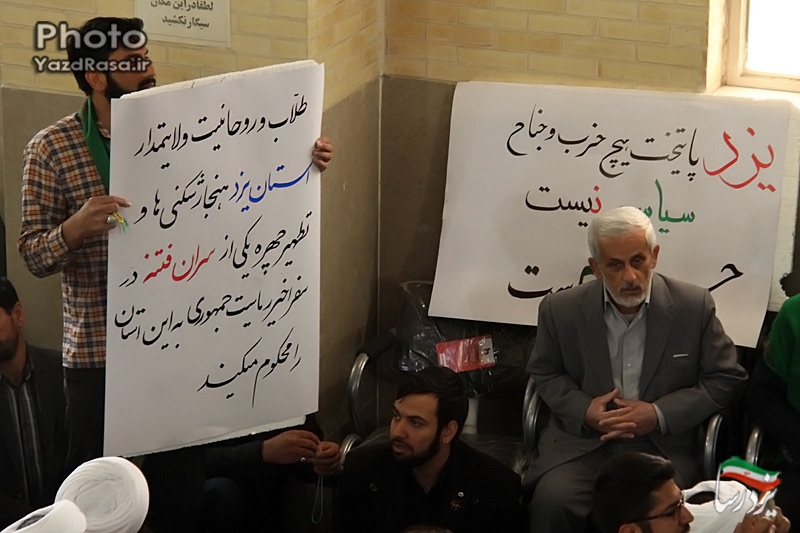 لطفا در این مکان
سیگار نکشید
Photo
YazdRasa.ir
طلّاب و روحانیت ولایتمدار
استان یزد هنجارشکنی ها و
تطهیر چهره یکی از سران فتنه در
سفر اخیر ریاست جمهوری به این استان
را محکوم میکنند
یزد پایتخت هیچ حزب و جناح
سیاسی نیست
یزد رسا